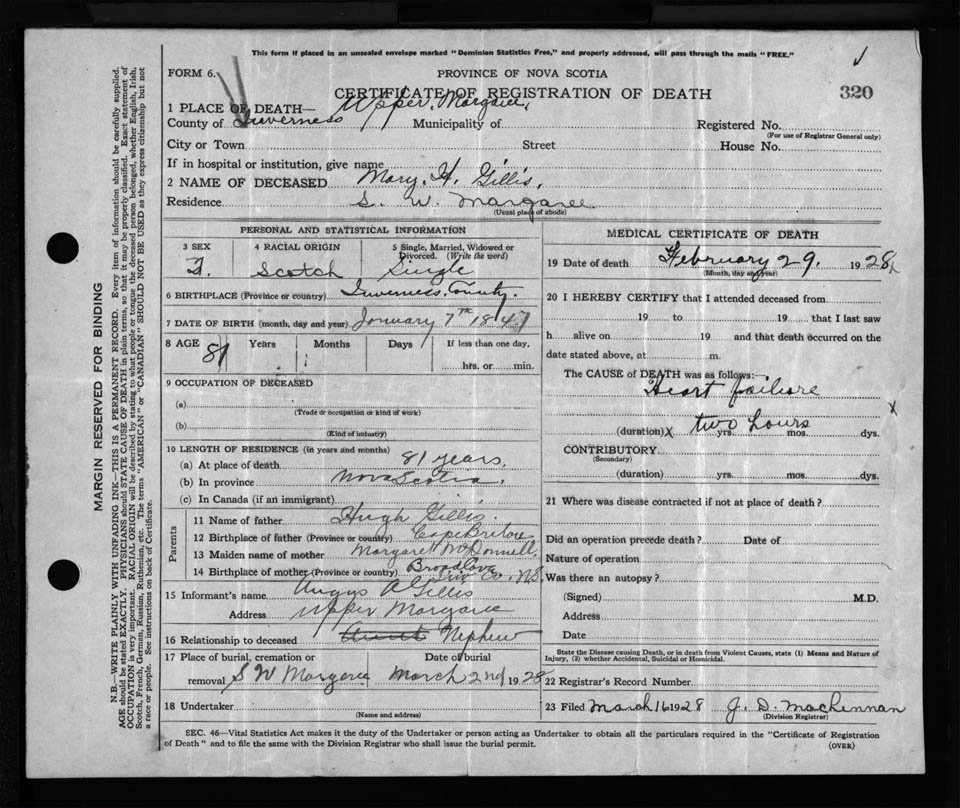 This form if placed in an unsealed envelope marked "Dominion Statistics Free," and properly addressed, will pass through the mails "FREE."
FORM 6.
PROVINCE OF NOVA SCOTIA
CERTIFICATE OF REGISTRATION OF DEATH
320
1 PLACE OF DEATH— Upper Margaree,
County of Inverness Municipality of Registered No.
(For use of Registrar General only)
City or Town Street House No.
If in hospital or institution, give name
2 NAME OF DECEASED Mary. H. Gillis,
Residence S. W. Margaree
(Usual place of abode)
PERSONAL AND STATISTICAL INFORMATION
3 SEX 4 RACIAL ORIGIN 5 Single, Married, Widowed or Divorced. (Write the word)
F. Scotch Single
6 BIRTHPLACE (Province or country) Inverness County.
7 DATE OF BIRTH (month, day and year) January 7th 1847
8 AGE 81 Years Months Days If less than one day,
hrs. or min.
9 OCCUPATION OF DECEASED
(a)
(Trade or occupation or kind of work)
(b)
(Kind of industry)
10 LENGTH OF RESIDENCE (in years and months)
(a) At place of death 81 years,
(b) In province Nova Scotia.
(c) In Canada (if an immigrant)
Parents
11 Name of father Hugh Gillis.
12 Birthplace of father (Province or country) Cape Breton
13 Maiden name of mother Margaret McDonnell
14 Birthplace of mother (Province or country) Broad Cove
Inv Co. N.S.
15 Informant's name Angus A Gillis
Address Upper Margaree
16 Relationship to deceased Aunt Nephew
17 Place of burial, cremation or Date of burial
removal S W Margaree March 2nd 1928
18 Undertaker
(Name and address)
MEDICAL CERTIFICATE OF DEATH
19 Date of death February 29. 1928
(Month, day and year)
20 I HEREBY CERTIFY that I attended deceased from
19 to 19 that I last saw
h alive on 19 and that death occurred on the
date stated above, at m.
The CAUSE of DEATH was as follows:—
Heart failure
x
(duration) x two hours yrs. mos. dys.
CONTRIBUTORY
(Secondary)
(duration) yrs. mos. dys.
21 Where was disease contracted if not at place of death?
Did an operation precede death? Date of
Nature of operation
Was there an autopsy?
(Signed) M.D.
Address
Date
State the Disease causing Death, or in death from Violent Causes, state (1) Means and Nature of
Injury, (2) whether Accidental, Suicidal or Homicidal.
22 Registrar's Record Number
23 Filed March 16 1928 J. D. MacLennan
(Division Registrar)
SEC. 46—Vital Statistics Act makes it the duty of the Undertaker or person acting as Undertaker to obtain all the particulars required in the "Certificate of Registration
of Death" and to file the same with the Division Registrar who shall issue the burial permit.
(OVER)
MARGIN RESERVED FOR BINDING
N.B.—WRITE PLAINLY WITH UNFADING INK—THIS IS A PERMANENT RECORD. Every item of information should be carefully supplied.
AGE should be stated EXACTLY. PHYSICIANS should STATE CAUSE OF DEATH in plain terms, so that it may be properly classified. Exact statement of
OCCUPATION is very important. RACIAL ORIGIN will be described by stating to what people or tongue the deceased person belonged, whether English, Irish,
Scotch, French, German, Russian, Ruthenian, etc. The terms "AMERICAN" or "CANADIAN" SHOULD NOT BE USED as they express citizenship but not
a race or people. See instructions on back of Certificate.